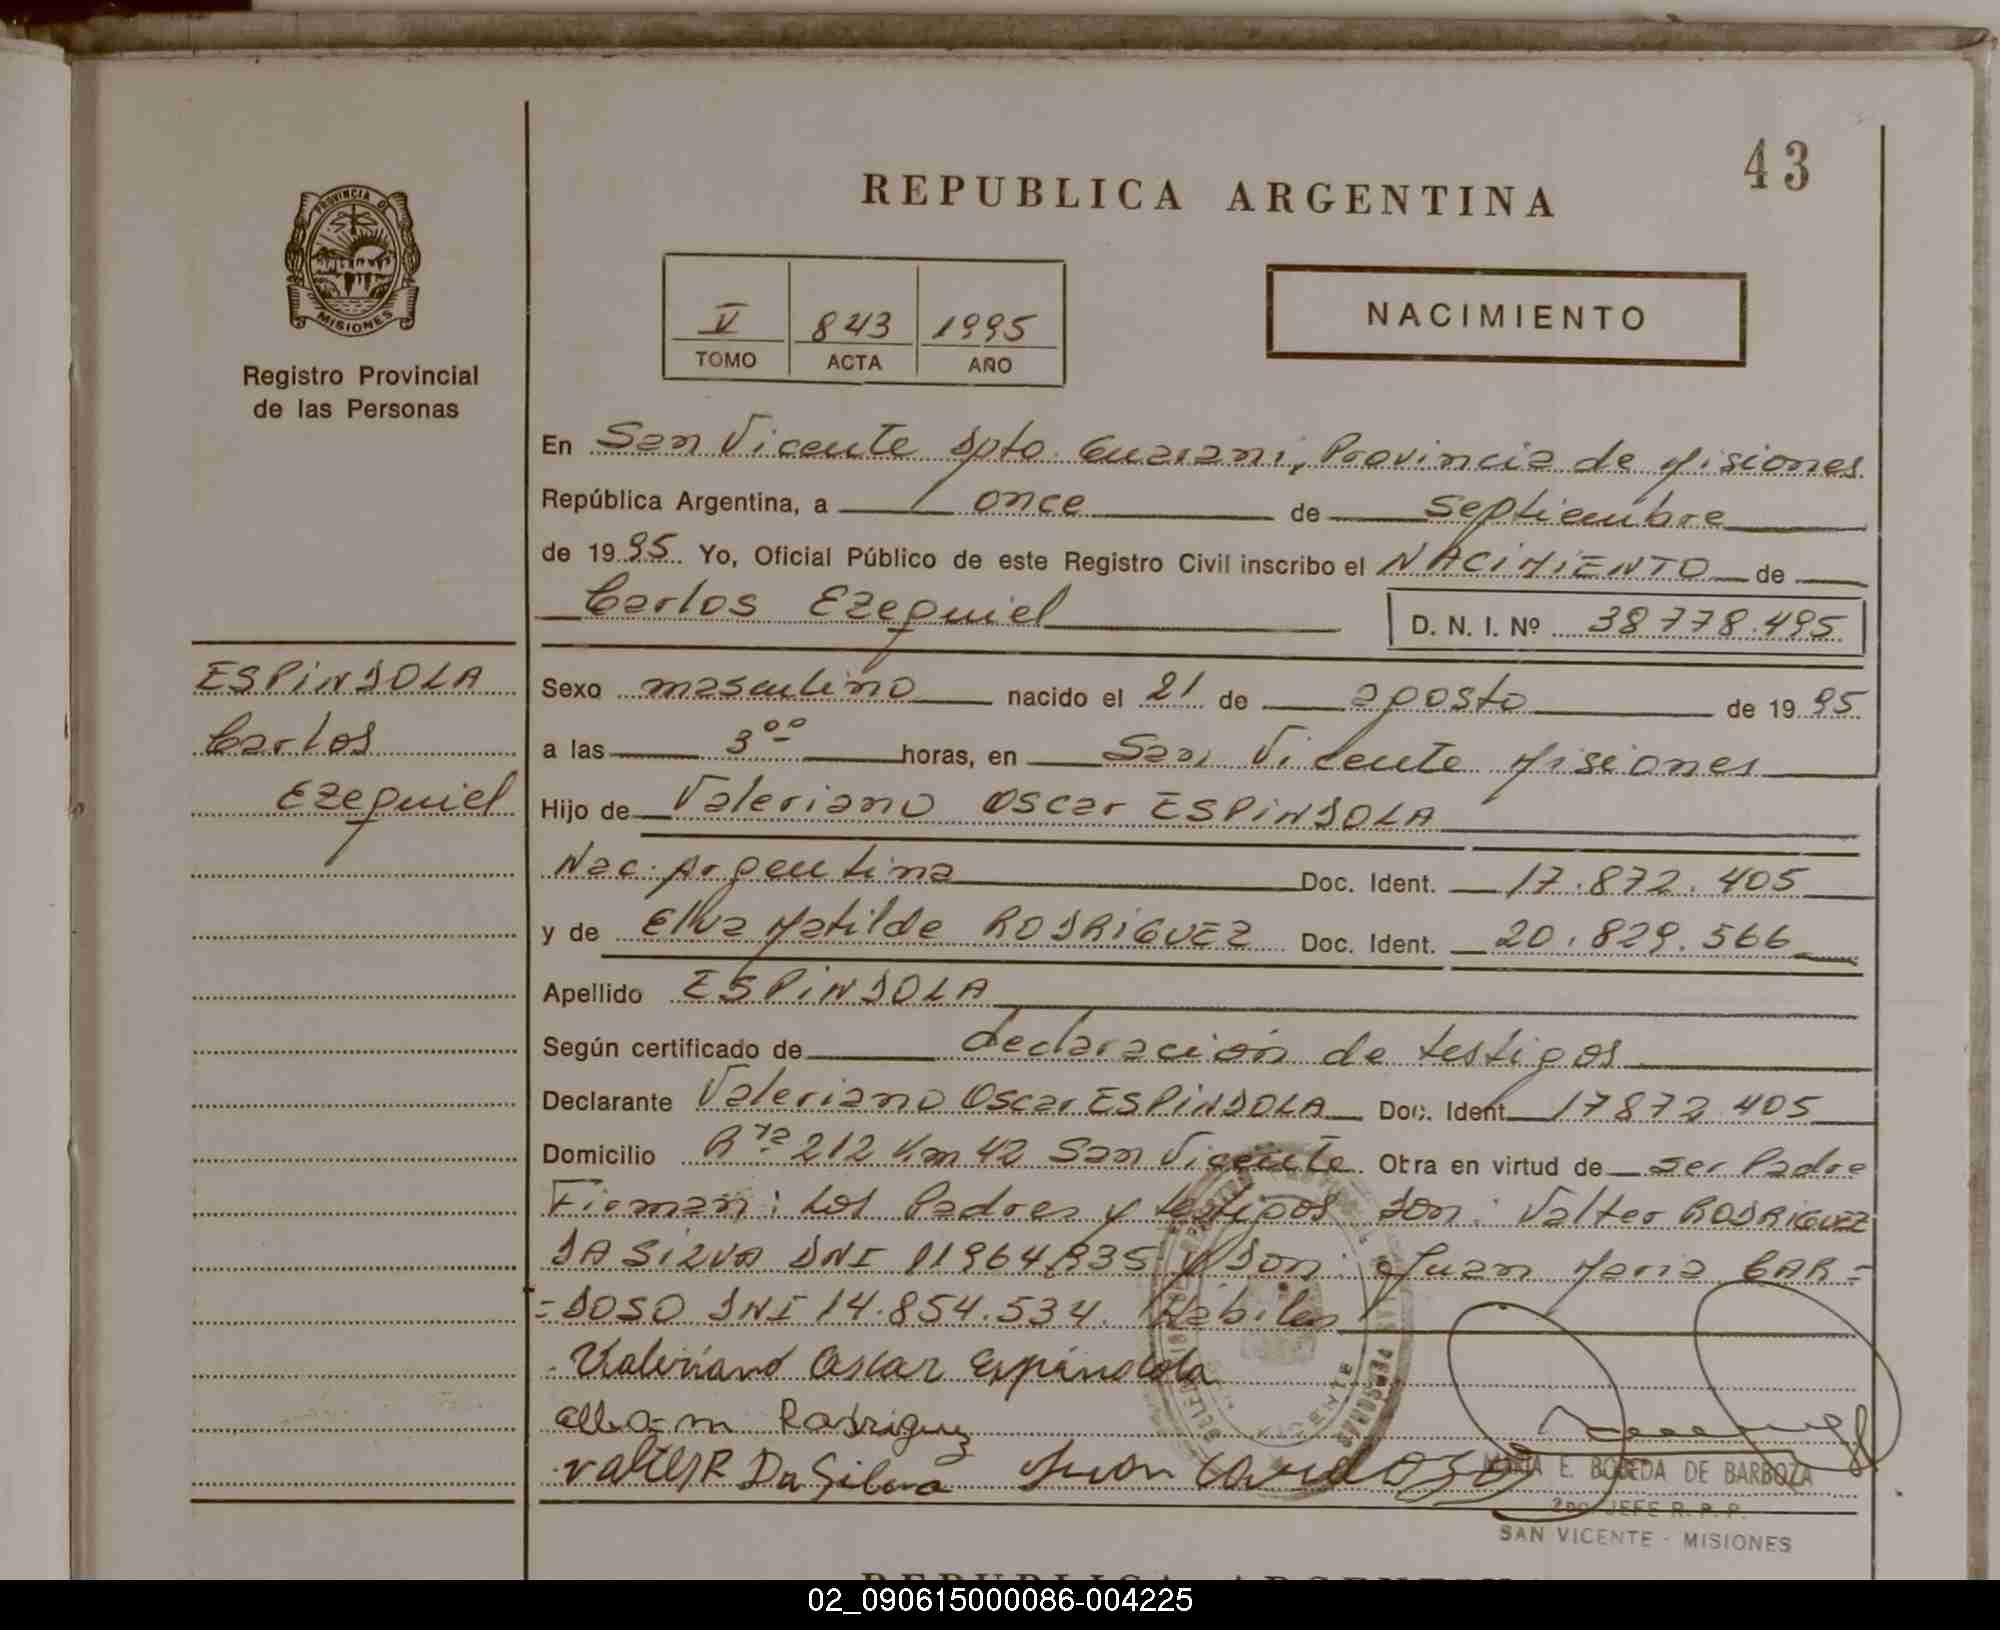 43
REPUBLICA ARGENTINA
PROVINCIA DE
MISIONES
Registro Provincial
de las Personas
V 843 1995
TOMO ACTA AÑO
NACIMIENTO
En San Vicente Dpto. Guarani, Provincia de Misiones
República Argentina, a once de septiembre
de 1995. Yo, Oficial Público de este Registro Civil inscribo el NACIMIENTO de
Carlos Ezequiel D. N. I. Nº 38778.495
ESPINDOLA
Carlos
Ezequiel
Sexo masculino nacido el 21 de agosto de 1995
a las 3⁰⁰ horas, en San Vicente Misiones
Hijo de Valeriano Oscar ESPINDOLA
Nac. Argentina Doc. Ident. 17.872.405
y de Elva Matilde RODRIGUEZ Doc. Ident. 20.829.566
Apellido ESPINDOLA
Según certificado de declaración de testigos
Declarante Valeriano Oscar ESPINDOLA Doc. Ident. 17872405
Domicilio Rta 212 Km 42 San Vicente. Obra en virtud de ser Padre
Firman: Los Padres y testigos don: Valter RODRIGUEZ
DA SILVA DNI 11964,935 y Don: Juan Maria CAR=
=DOSO DNI 14.854.534. Habiles
Valeriano Oscar Espindola
elba m Rodriguez
valter R Da Silva Juan Cardozo
MARIA E. BOBEDA DE BARBOZA
2do. JEFE R. P. P.
SAN VICENTE - MISIONES
REPUBLICA ARGENTINA
02_090615000086-004225